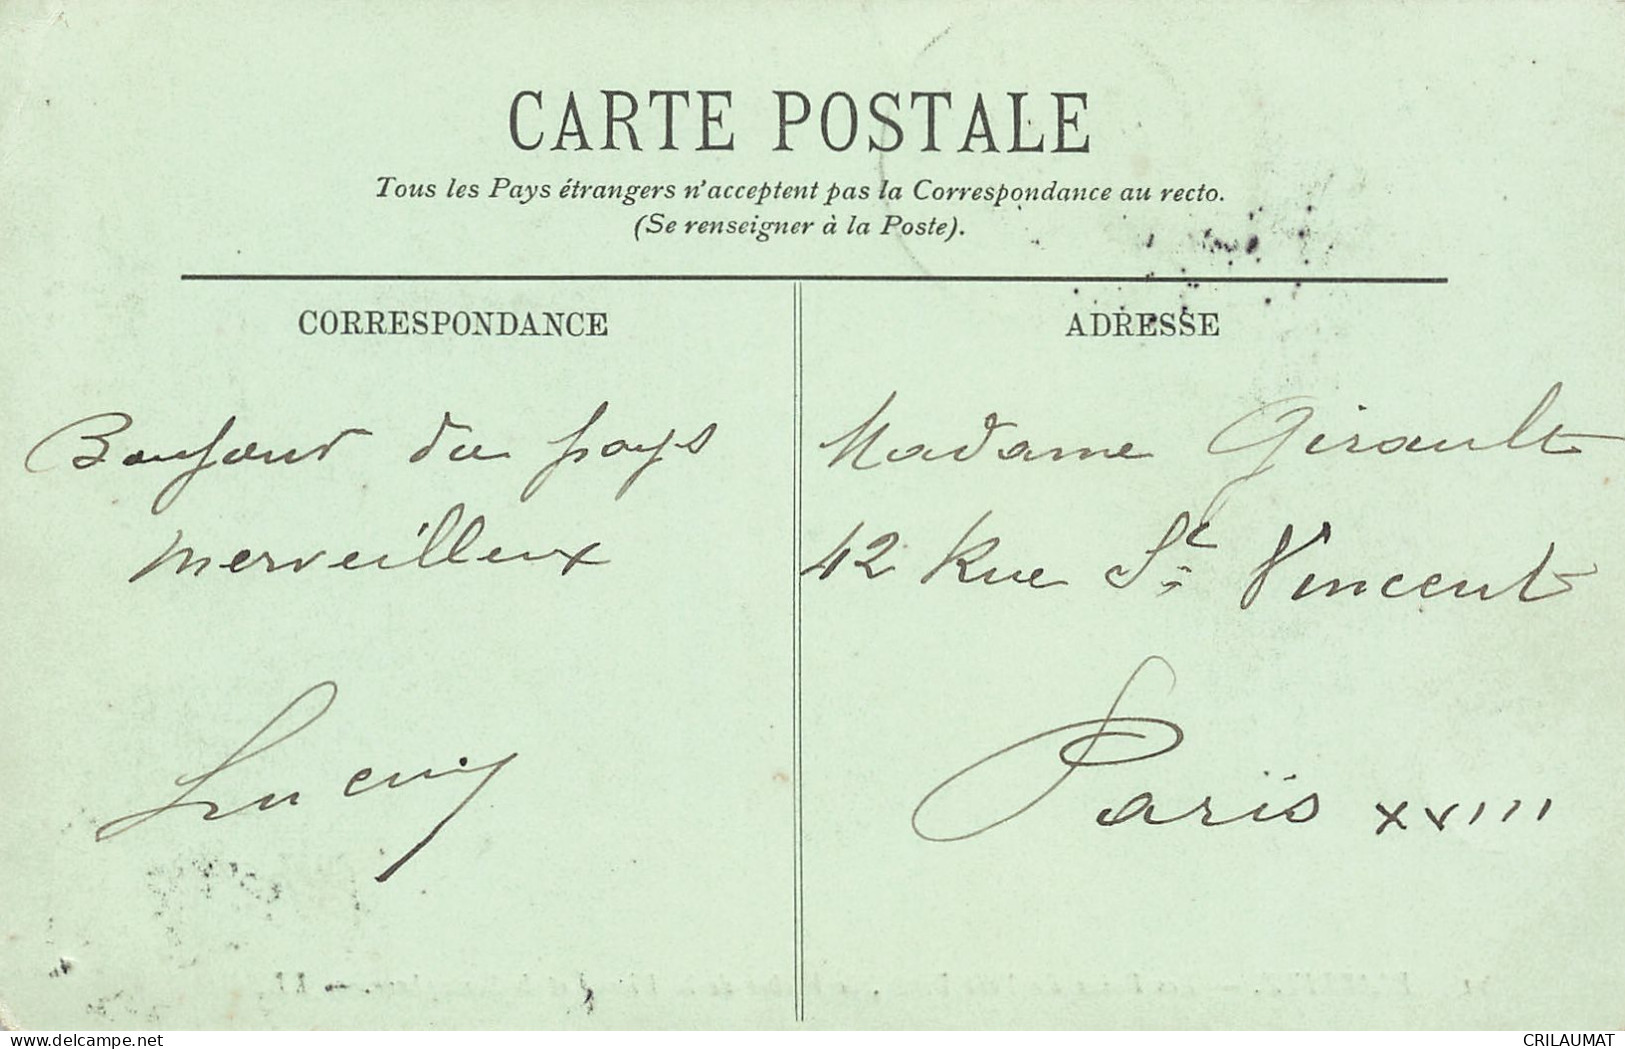 CARTE POSTALE
Tous les Pays étrangers n'acceptent pas la Correspondance au recto.
(Se renseigner à la Poste).
CORRESPONDANCE
Bonjour du pays
merveilleux
ADRESSE
Madame Girault
42 Rue St Vincent
Paris XVIII
delcampe.net
CRILAUMAT